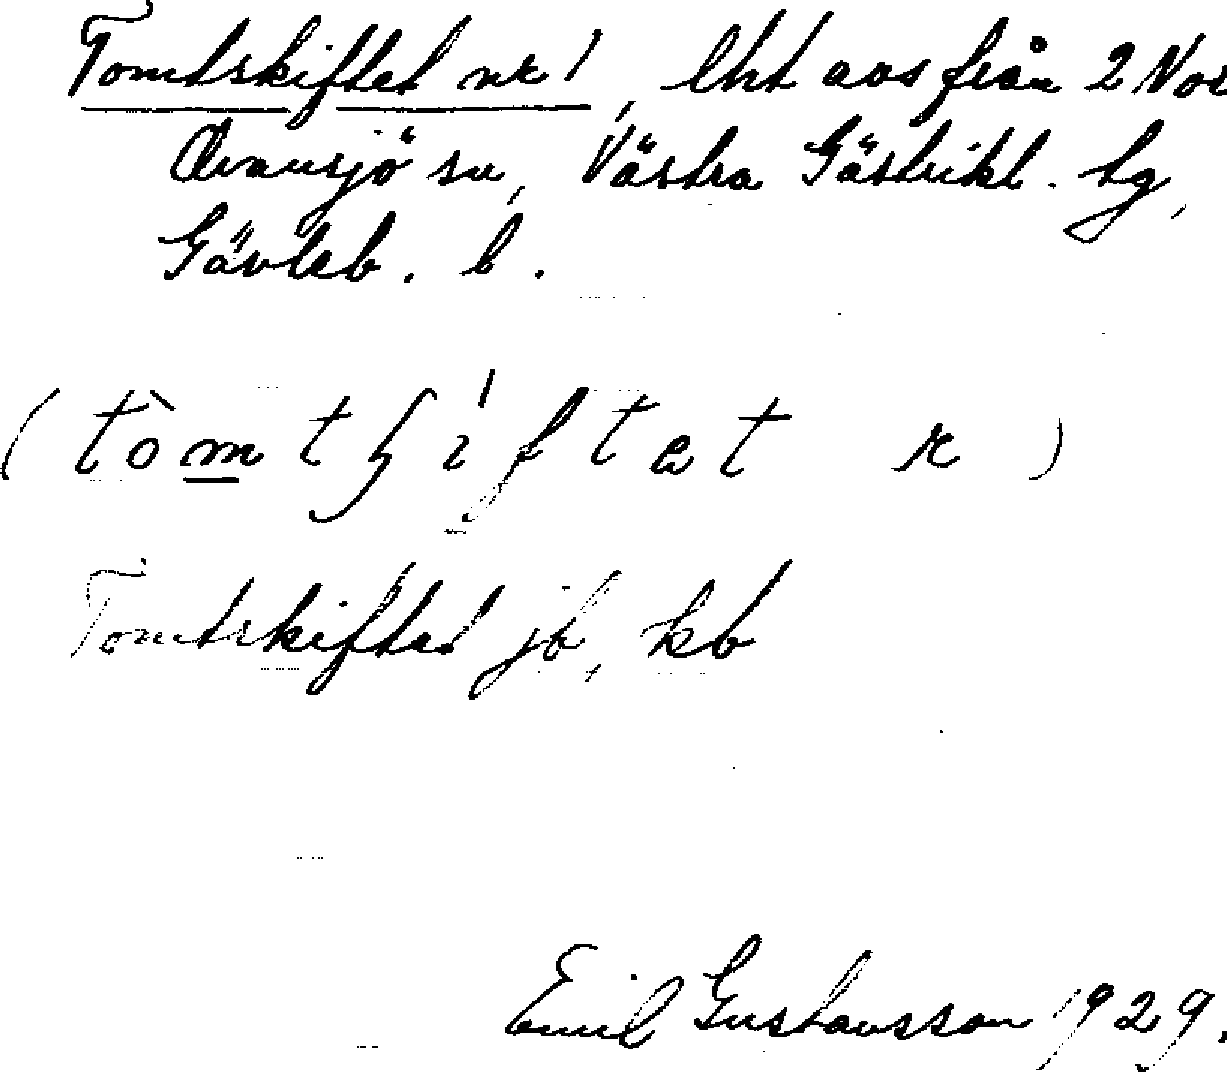 Tomtskiftet nr 1, lht avs från 2 Nor
Ovansjö sn, Västra Gästrikl. tg,
Gävleb. l.
Tomtskiftet jb, kb
Emil Gustavsson 1929.